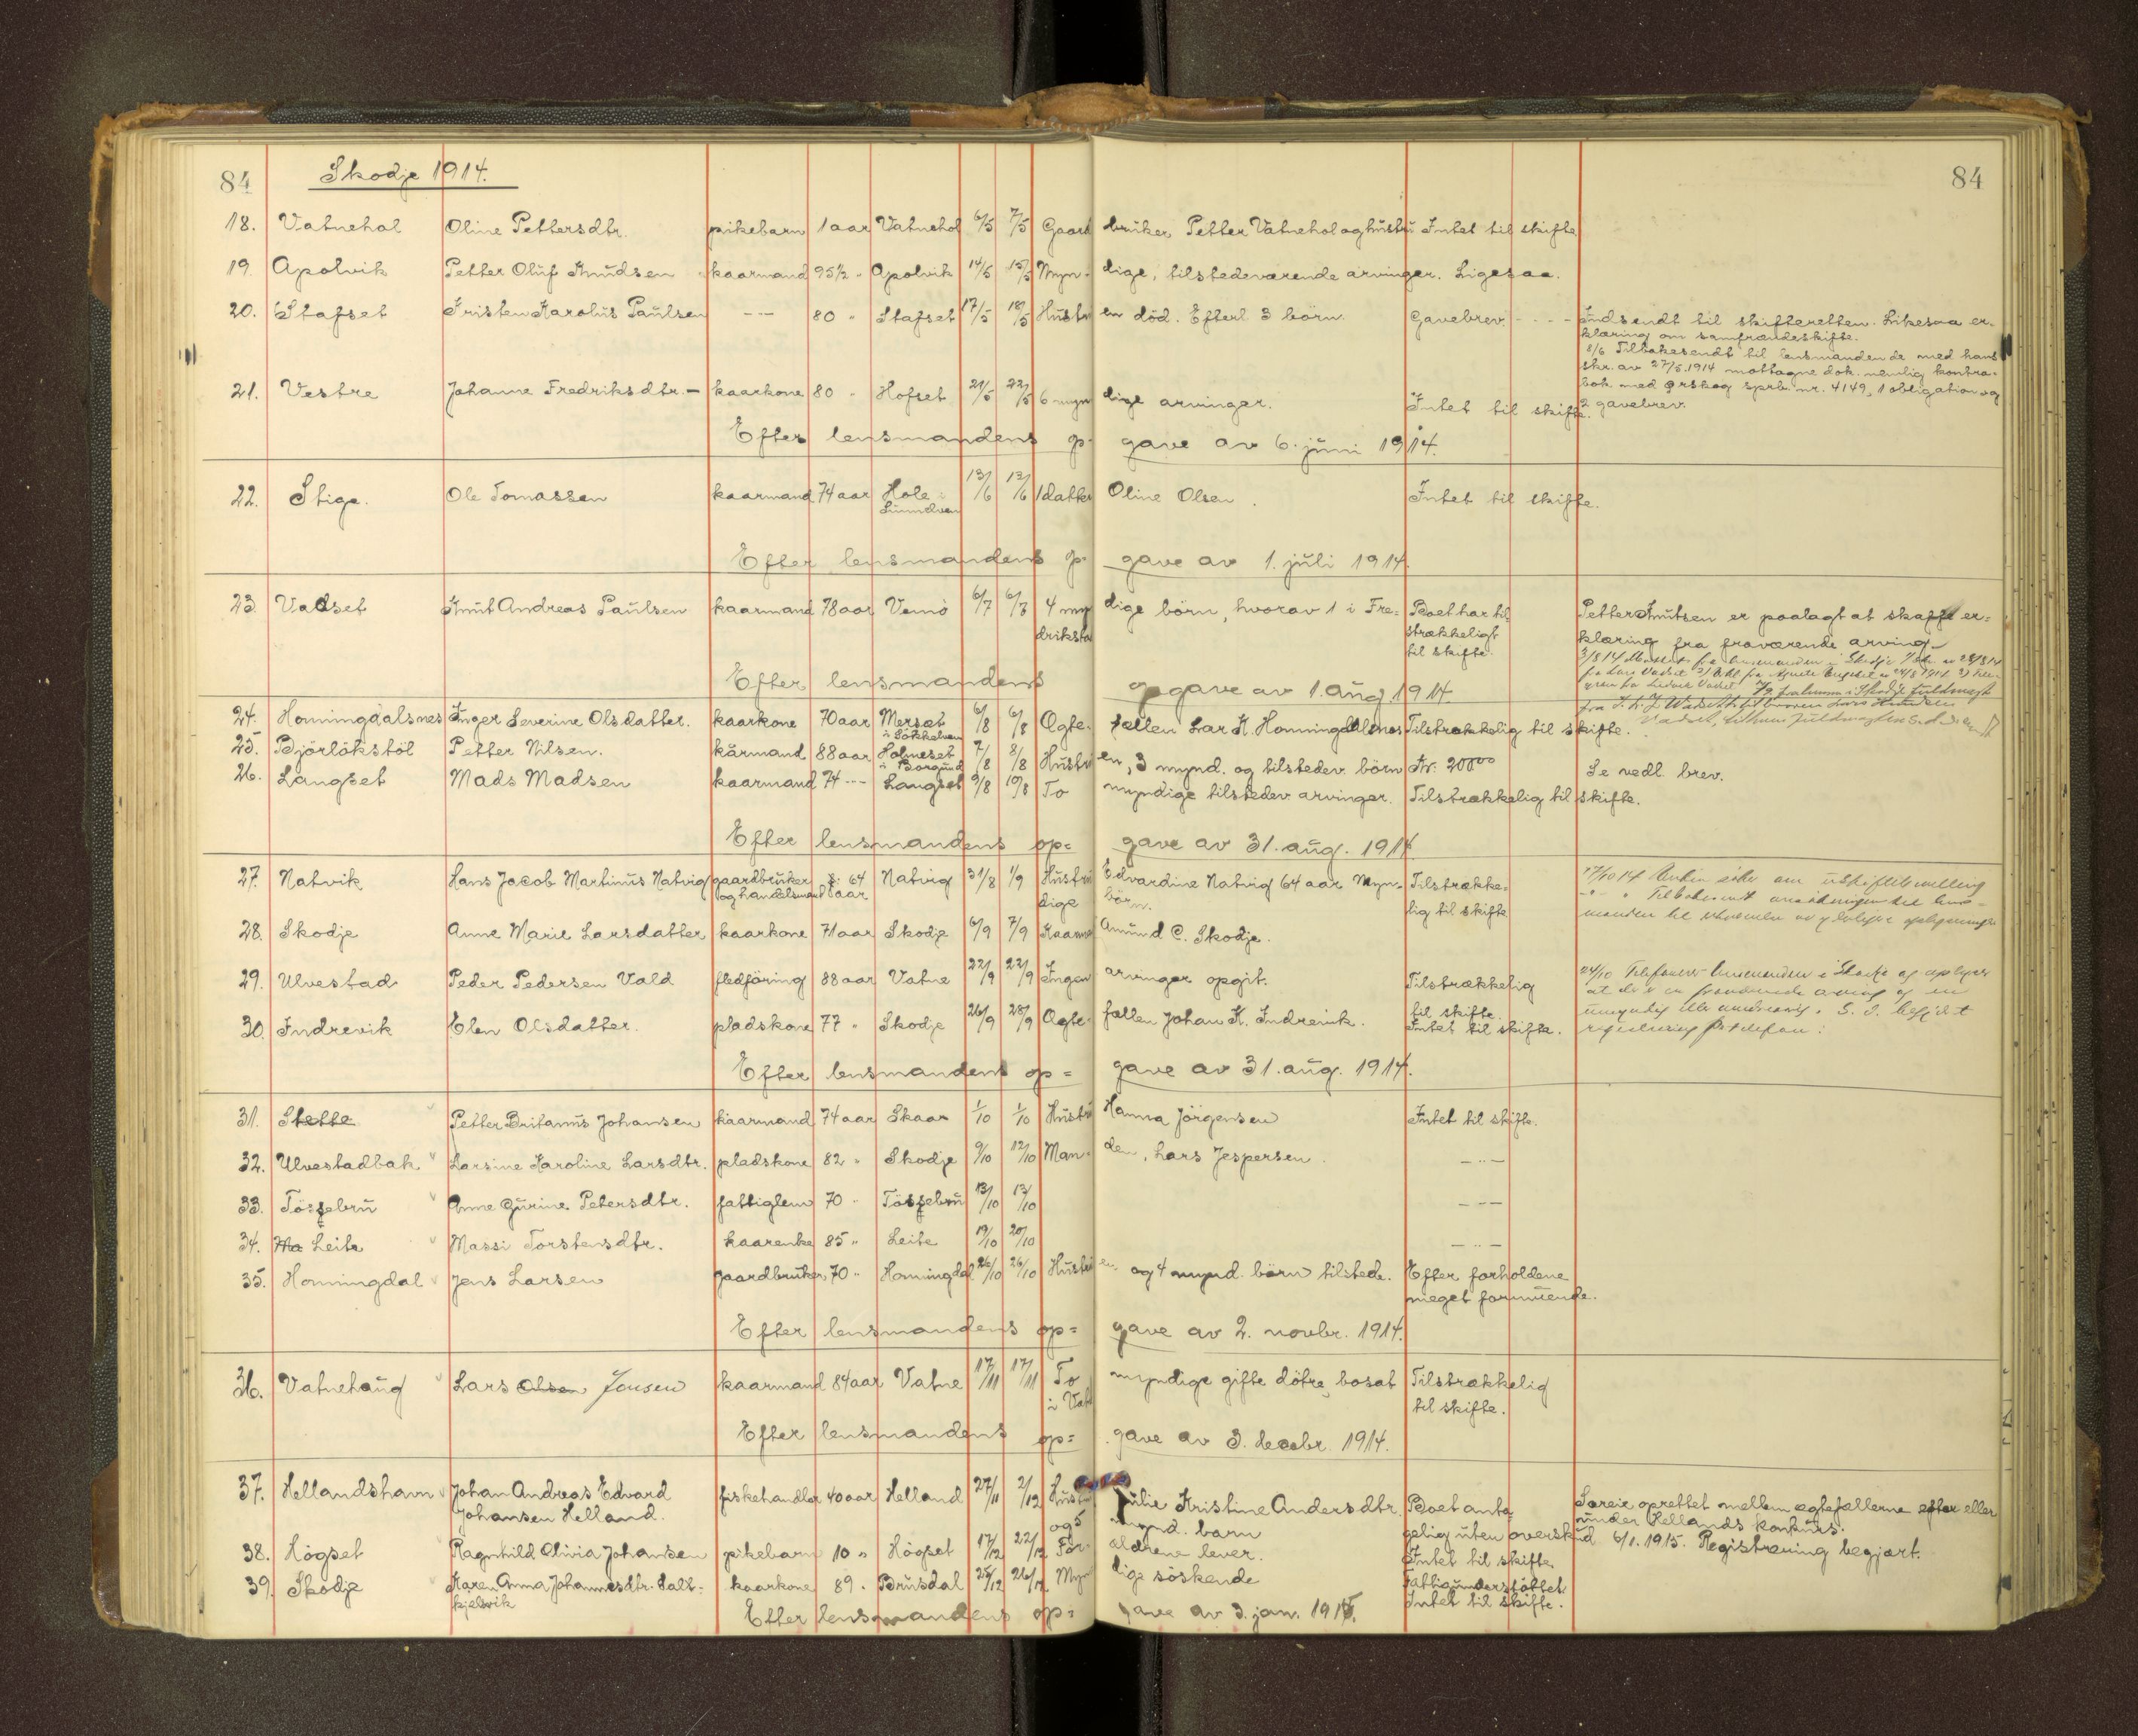 84 Skodje 1914. 84
18. Vatnehol Oline Pettersdtr. pikebarn 1 aar Vatnehol 6/5 7/5 Gaardbruker Petter Vatnehol og hustru Intet til skifte
19. Apolvik Petter Oluf Knudsen kaarmand 95½ " Apolvik 14/5 15/5 Myndige, tilstedeværende arvinger. Ligesaa.
20. Stafset Kristen Karolus Paulsen --- 80 " Stafset 17/5 18/5 Hustruen död. Efterl 3 börn. Gavebrev. - - - - Indsendt til skifteretten. Likesaa er-
klæring om samfrændeskifte.
8/6 Tilbakesendt til lensmanden de med hans
skr. av 27/5 1914 mottagne dok. nemlig kontra-
bok med Ørskog sprb. nr. 4149, 1 obligation og
2 gavebrev.
21. Vestre Johanne Fredriksdtr. - kaarkone 80 " Hofset 21/5 22/5 6 myndige arvinger. Intet til skifte.
Efter lensmandens opgave av 6. juni 1914.
22. Stige. Ole Tomassen kaarmand 74 aar Hole i 13/6 13/6 1 datter Oline Olsen. Intet til skifte.
Efter lensmandens op- gave av 1. juli 1914.
23. Vadset Knut Andreas Paulsen kaarmand 78 aar Vemö 6/7 6/7 4 myndige börn, hvorav 1 i Fre- Boet har til- Petter Knutsen er paalagt at skaffe er-
driksta strækkeligt klæring fra fraværende arving
til skifte.
Efter lensmandens opgave av 1. aug 1914.
24. Honningdalsnes Inger Severine Olsdatter. kaarkone 70 aar Mersæt 6/8 6/8 Ægtefællen Lar K. Honningdalsnes Tilstrækkelig til skifte.
25. Björlökstöl Petter Nilsen. kårmand 88 aar Holmeset 7/8 8/8 Hustruen, 3 mynd. og tilstedev. börn Kr. 2000.00 Se vedl. brev.
i Borgund
26. Langset Mads Madsen kaarmand 74 --- Langset 9/8 10/8 To myndige tilstedev arvinger. Tilstrækkelig til skifte.
Efter lensmandens op= gave av 31. aug. 1914.
27. Natvik Hans Jacob Martinus Natvig gaardbruker 64 Natvig 31/8 1/9 Hustru Edvardine Natvig 64 aar Myn- Tilstrække-
og handelsmand aar dige börn. lig til skifte
28. Skodje Anne Marie Larsdatter kaarkone 71 aar Skodje 6/9 7/9 Amund C. Skodje.
29. Ulvestad Peder Pedersen Vald fledföring 88 aar Vatne 22/9 22/9 Ingen arvinger opgit. Tilstrækkelig
til skifte.
30. Indrevik Elen Olsdatter. pladskone 77 " Skodje 26/9 28/9 Ægtefællen Johan K. Indrevik. Intet til skifte.
Efter lensmandens op= gave av 31. aug. 1914.
31. Stette Petter Britanus Johansen kaarmand 74 aar Skaar 1/10 1/10 Hustru Hanna Jörgensen Intet til skifte.
32. Ulvestadbak Larsine Karoline Larsdtr. pladskone 82 " Skodje 9/10 12/10 Manden, Lars Jespersen. - " -
33. Tössebru Anne Gurine Petersdtr. fattiglem 70 " Tössebru 13/10 13/10 - - -
34. Leite Massi Torstensdtr. kaarenke 85 " Leite 19/10 20/10 - " -
35. Honningdal Jens Larsen gaardbruker 70 " Honningdal 26/10 26/10 Hustruen og 4 mynd. börn tilstede. Efter forholdene
meget formuende.
Efter lensmandens op= gave av 2. novbr. 1914.
36. Vatnehaug Lars Olsen Jonsen kaarmand 84 aar Vatne 17/11 17/11 To myndige gifte dötre, bosat Tilstrækkelig
i Vat til skifte.
Efter lensmandens op= gave av 3. decbr. 1914.
37. Hellandshavn Johan Andreas Edvard fiskehandler 40 aar Helland 27/11 2/12 Hustru Julie Kristine Andersdtr. Boet anta- Særeie oprettet mellem ægtefællerne efter eller
Johansen Helland. og 5 mynd. barn gelig uten overskud under Hellands konkurs.
6/1. 1915. Registrering begjært.
38. Högset Ragnhild Olivia Johansen pikebarn 10 " Högset 17/12 22/12 Forældrene lever. Intet til skifte
39. Skodje Karen Anna Johannesdtr. Dalt= kaarkone 89 " Brusdal 25/12 26/12 Myndige söskende Fattigunderstöttet.
kjelsvik Intet til skifte.
Efter lensmandens op= gave av 3. jan. 1915.